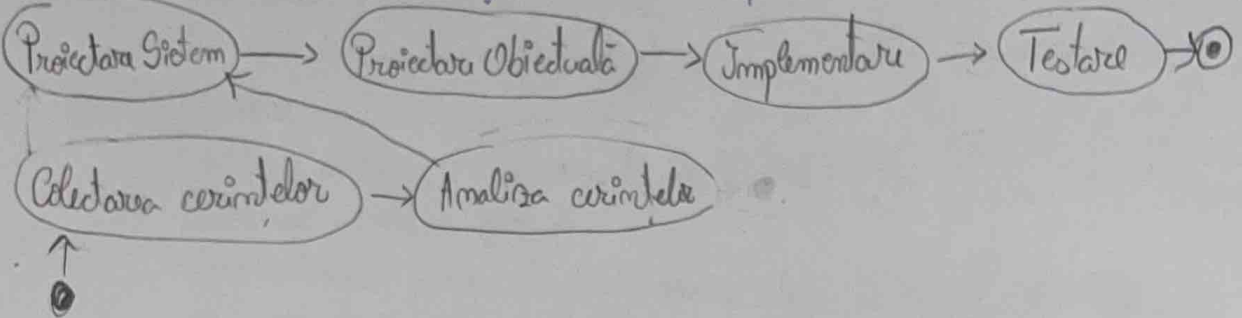 Proiectara Sistem
Proiectaru Obiectuală
Implementaru
Testare
Colectarea cerințelor
Analiza cerințelor